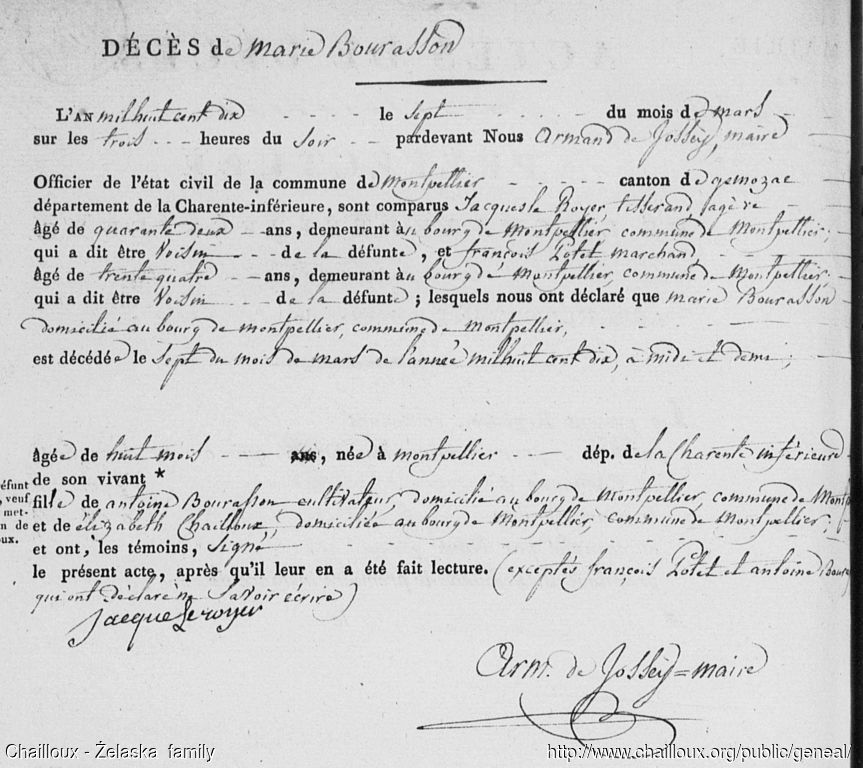 DÉCÈS de marie Bourasson
L'AN mil huit cent dix le sept du mois de mars
sur les trois heures du soir pardevant Nous Armand de Jossey, maire
Officier de l'état civil de la commune de Montpellier canton de gemozac
département de la Charente-inférieure, sont comparus Jacques le Royer, tisserand,
âgé de quarante deux ans, demeurant au bourg de Montpellier, commune de Montpellier,
qui a dit être Voisin de la défunte, et françois Potet marchand,
âgé de trente quatre ans, demeurant au bourg de Montpellier, commune de Montpellier
qui a dit être Voisin de la défunte ; lesquels nous ont déclaré que marie Bourasson
domicilié au bourg de montpellier, commune de Montpellier,
est décédée le sept du mois de mars de l'année mil huit cent dix, à midi et demi ;
âgée de huit mois ans, née à montpellier dép. de la Charente inférieure
de son vivant *
fille de antoine Bourasson cultivateur, domicilié au bourg de Montpellier, commune de Mont
et de élizabeth Chailloux, domiciliée au bourg de Montpellier, commune de Montpellier,
et ont, les témoins, signé
le présent acte, après qu'il leur en a été fait lecture. (exceptés françois Potet et antoine Bouras
qui ont déclaré ne savoir écrire)
éfunt
, veuf
met-
n de
oux.
Jacque Leroyer
Arm. de Jossey = maire
Chailloux - Żelaska family
http://www.chailloux.org/public/geneal/